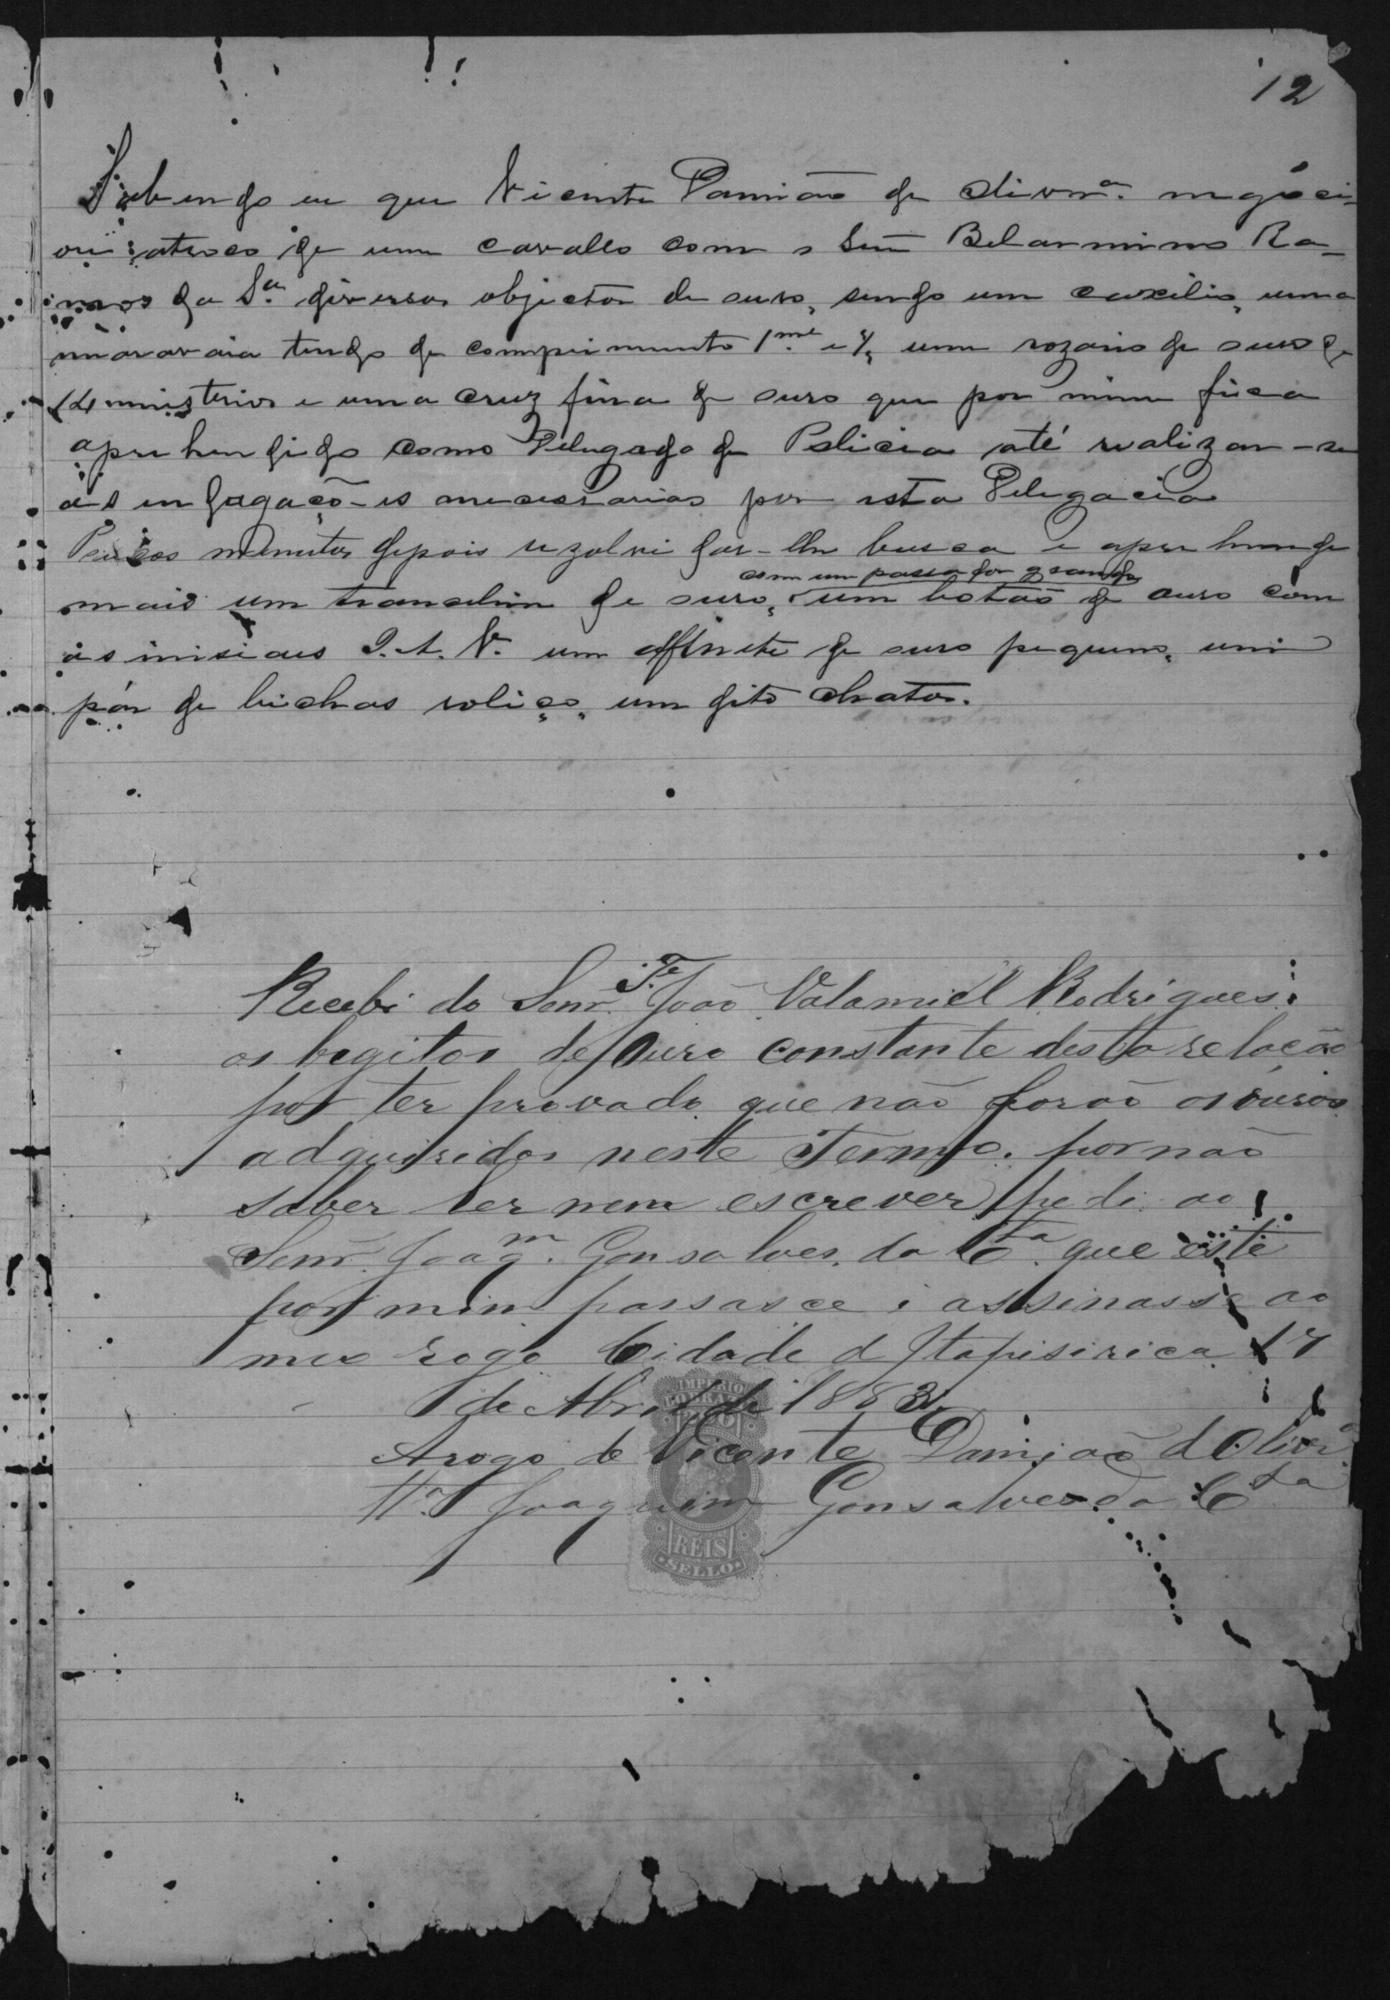 12
Sabendo eu que Vicente Damião de Olivrª. negoci-
ou atroco de um cavallo com o Snr Belarmino Ra-
mos da Sª. diversos objectos de ouro, sendo um
tendo de comprimento 1 me e um rozario de ouro de
14 misterios e uma cruz fina de ouro que por mim fica
aprehendido como Delegado de Policia até realizar-se
as indagaçõ-es necessarias por esta Delegacia
Poucos minutos depois rezolvi dar-lhe busca e aprehende
com um passador grande
mais um trancelim de ouro, um botão de ouro com
as inisiais J. A. V. um alfinete de ouro pequeno, um
pár de bichas roliço, um dito chatos.
Recebi do Senr. Te. João Valamiel Rodrigues:
os bogitos de Ouro constante desta relação
por ter provado que não forão os ouros
adquiridos neste Termo. por não
saber ler nem escrever pedi ao
Senr. Joaqm. Gonsalves da Cta. que este
por mim passasce i assinasse ao
meu rogo Cidade d Itapisirica 17
de Abril de 1883
Arogo de Vicente Damião d Olivrª
Joaquim Gonsalves da Cta
IMPERIO
DO BRAZIL
200
REIS
SELLO